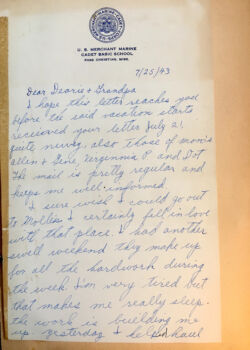 U. S. MERCHANT MARINE
CADET BASIC SCHOOL
PASS CHRISTIAN, MISS.
7/25/43
Dear Dearie & Grandpa
I hope this letter reaches you
before the said vacation starts
received your letter July 21
quite newsy, also those of mom's
allen & Gene, Virginnia P. and Dot
The mail is pretty regular and
keeps me well informed.
I sure wish I could go out
to Mollies I certainly fell in love
with that place. I had another
swell weekend they make up
for all the hardwork during
the week I'm very tired but
that makes me really sleep.
the work is building me
up. yesterday I helped haul